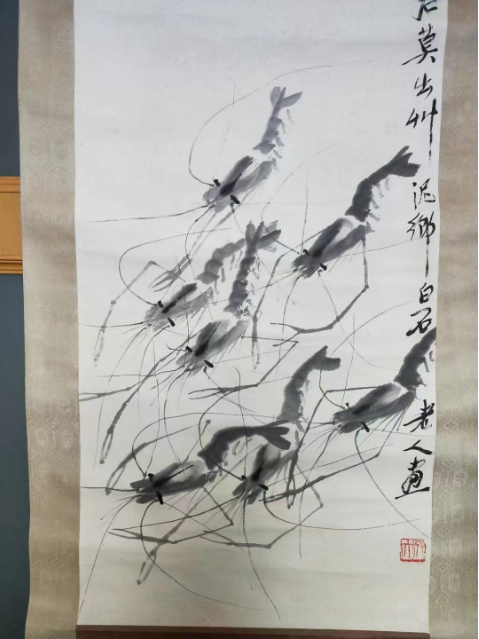 莫出艸泥鄉白石老人畫